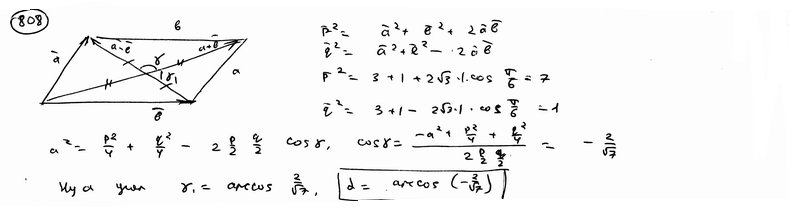 808
b
ā
ā-b̄
ā+b̄
γ
γ₁
a
b̄
p̄² = ā² + b̄² + 2āb̄
q̄² = ā² + b̄² - 2āb̄
p̄² = 3 + 1 + 2√3·1·cos π/6 = 7
q̄² = 3 + 1 - 2√3·1·cos π/6 = 1
a² = p²/4 + q²/4 - 2 p/2 q/2 cos γ, cos γ = (-a² + p²/4 + q²/4)/(2 p/2 q/2) = - 2/√7
Ну а угол γ₁ = arccos 2/√7, d = arccos (-2/√7)